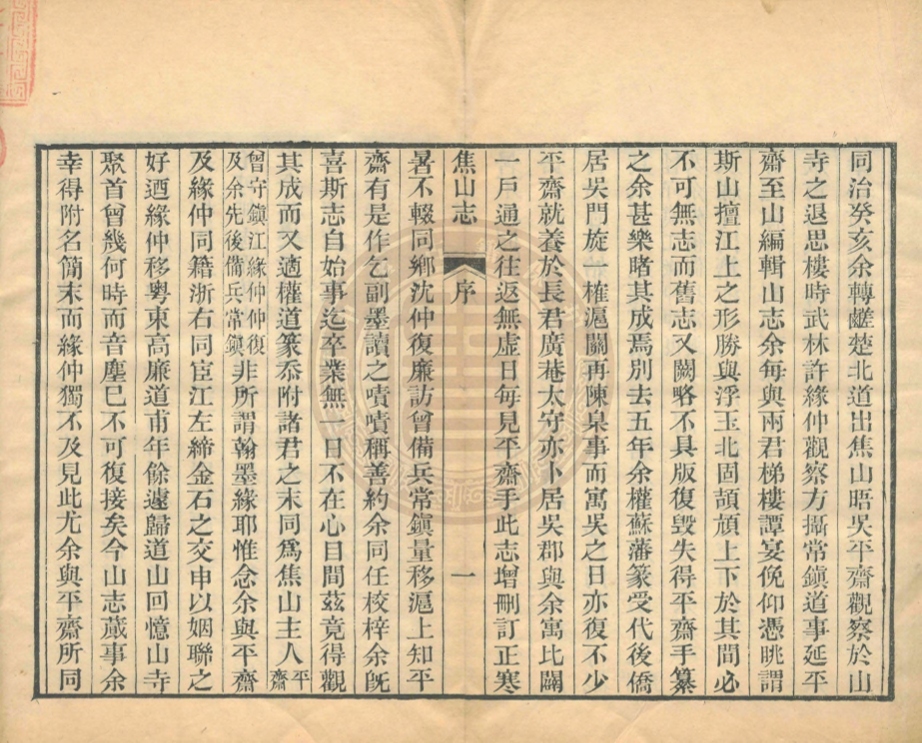 同治癸亥余轉鹺楚北道出焦山晤吳平齋觀察於山
寺之退思樓時武林許緣仲觀察方攝常鎭道事延平
齋至山編輯山志余每與兩君梯樓譚宴俛仰憑眺謂
斯山擅江上之形勝與浮玉北固頡頏上下於其間必
不可無志而舊志又闕略不具版復毀失得平齋手纂
之余甚樂睹其成焉別去五年余權蘇藩篆受代後僑
居吳門旋一榷滬關再陳臬事而寓吳之日亦復不少
平齋就養於長君廣菴太守亦卜居吳郡與余寓比闢
一戶通之往返無虛日每見平齋手此志增刪訂正寒
焦山志 序 一
暑不輟同鄉沈仲復廉訪曾備兵常鎭量移滬上知平
齋有是作乞副墨讀之嘖嘖稱善約余同任校梓余旣
喜斯志自始事迄卒業無一日不在心目間茲竟得觀
其成而又適權道篆忝附諸君之末同爲焦山主人平齋
曾守鎭江緣仲仲復及余先後備兵常鎭非所謂翰墨緣耶惟念余與平齋
及緣仲同籍浙右同宦江左締金石之交申以姻聯之
好迺緣仲移粵東高廉道甫年餘遽歸道山回憶山寺
聚首曾幾何時而音塵已不可復接矣今山志蕆事余
幸得附名簡末而緣仲獨不及見此尤余與平齋所同